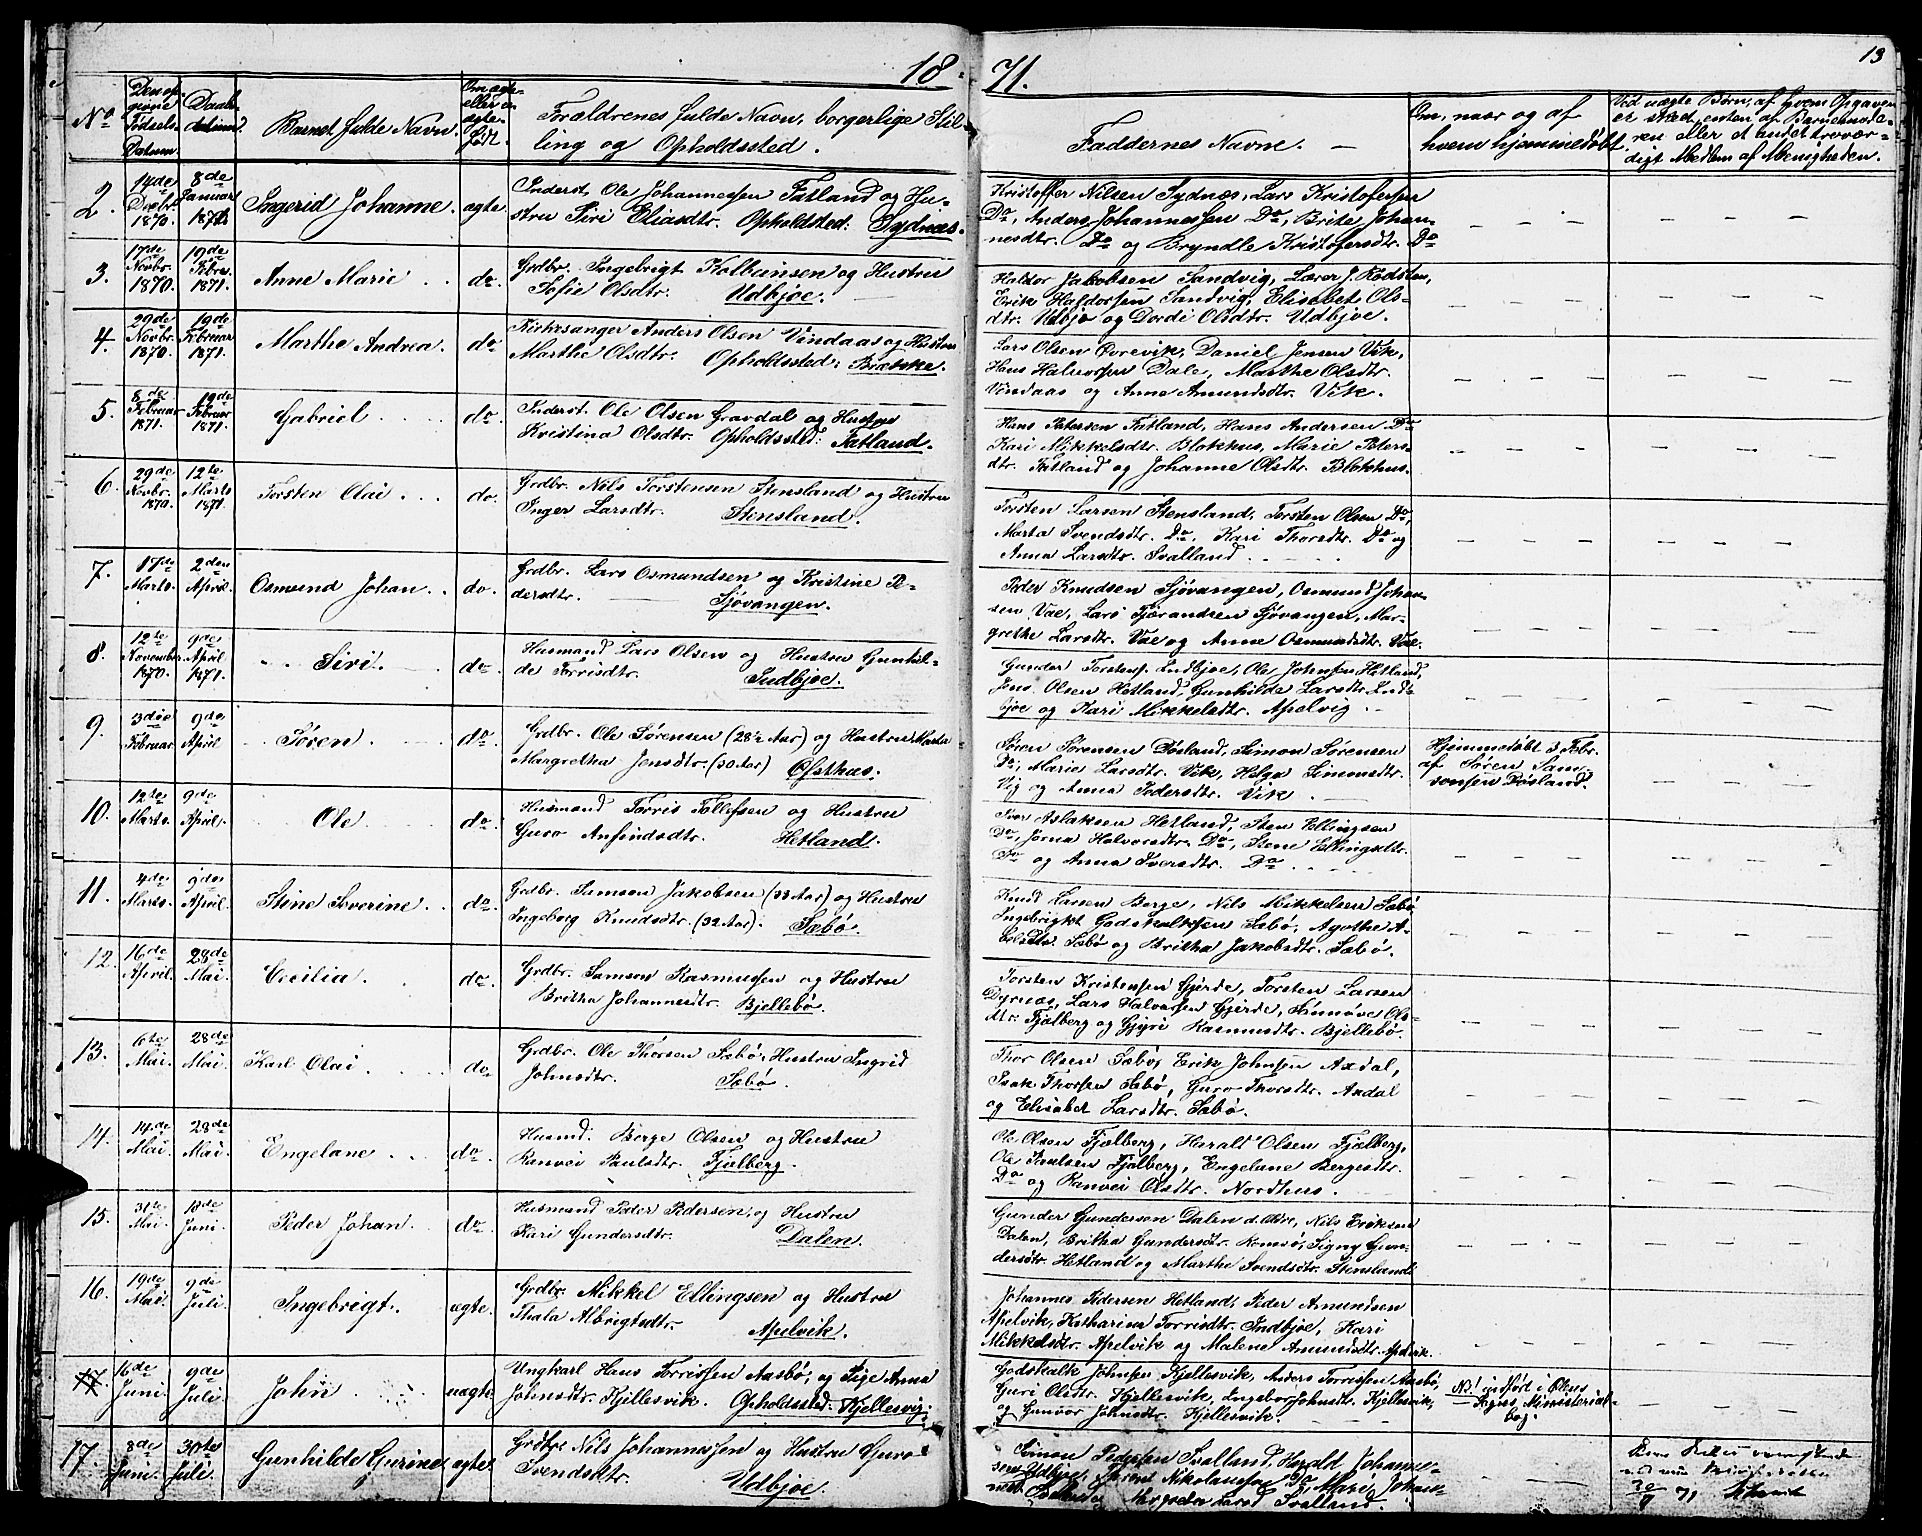 18 71.
13
No
Den op-
givne
Fødsels-
Datum.
Daabs-
datum.
Barnets fulde Navn.
Om ægte
eller u-
ægte
født.
Forældrenes fulde Navn, borgerlige Stil-
ling og Opholdssted.
Faddernes Navne.
Om, naar og af
hvem hjemmedøbt.
Ved uægte Børn, af hvem Opgaven
er skeet, enten af Barnemode-
ren eller et andet trovær-
digt Medlem af Menigheden.
2.
14de
Decbr.
1870.
8de
Januar
1871.
Ingerid Johanne.
ægte.
Inderst. Ole Johannessen Fatland og Hu-
stru Siri Eliasdtr. Opholdssted: Sydnæs.
Kristoffer Nilsen Sydnæs, Lars Kristofersen
Do, Anders Johannessen Do, Brite Johan-
nesdtr. Do og Bryndle Kristofersdtr. Do
3.
17de
Novbr.
1870.
19de
Febr.
1871.
Anne Marie
do.
Grdbr. Ingebrigt Kolbeinsen og Hustru
Sofie Olsdtr. Udbjoe.
Haldor Jakobsen Sandvig, Lærer J. Rødsten,
Erik Haldorsen Sandvig, Elisabet Ols-
dtr. Udbjo og Dordi Olsdtr. Udbjoe.
4.
29de
Novbr.
1870.
19de
Februar
1871.
Marthe Andrea.
do
Kirkesanger Anders Olsen Vindaas og Hustru
Marthe Olsdtr. Opholdssted: Brætske.
Lars Olsen Øvrevik, Daniel Jensen Vik,
Hans Halvorsen Dale, Marthe Olsdtr.
Vindaas og Anna Amundsdtr. Vik.
5.
8de
Februar
1871.
19de
Februar
1871.
Gabriel
do.
Inderst. Ole Olsen Gravdal og Hustru
Kristina Olsdtr. Opholdssted: Fatland.
Hans Petersen Fatland, Hans Andersen Do
Kari Mikkelsdtr. Blokhus, Marie Peters-
dtr. Fatland og Johanne Olsdtr. Blokhus.
6.
29de
Novbr.
1870.
12te
Marts
1871.
Torsten Olai
do.
Grdbr. Nils Torstensen Stensland og Hustru
Inger Larsdtr. Stensland.
Torsten Larsen Stensland, Torsten Olsen Do,
Marta Svendsdtr. Do, Kari Thorsdtr. Do og
Anna Larsdtr. Svalland
7.
17de
Marts.
2den
April.
Osmund Johan.
do.
Grdbr. Lars Osmundsen og Kristine Pe-
dersdtr. Sjøvangen.
Peder Knudsen Sjøvangen, Osmund Johan-
sen Vae, Lars Tjærandsen Sjøvangen, Mar-
grethe Larsdtr. Vae og Anne Osmundsdtr. Vae.
8.
12te
November
1870.
9de
April
1871.
Siri.
do.
Husmand Lars Olsen og Hustru Gunhil-
de Torrisdtr. Indbjoe.
Gunder Torstens. Indbjoe, Ole Johnsen Hetland,
Jens Olsen Hetland, Gunhilde Larsdtr. Ind-
bjoe og Kari Mikkelsdtr. Apelvig.
9.
3die
Februar
9de
April
Søren.
do.
Grdbr. Ole Sørensen (28½ Aar) og Hustru Marta
Margretha Jensdtr. (30 Aar) Østhus.
Søren Sørensen Døsland, Simon Sørensen
Do, Marie Larsdtr. Vik, Helga Simonsdtr.
Vig og Anna Pedersdtr. Vik.
Hjemmedøbt 3 Febr.
af Søren Sam-
sonsen Døsland.
10.
12te
Marts.
9de
April.
Ole
do.
Husmand Torris Tollefsen og Hustru
Guro Anfindsdtr. Hetland.
Iver Aslaksen Hetland, Sten Ellingsen
Do, Jorna Halvorsdtr. Do, Stene Ellingsdtr.
Do og Anna Iversdtr. Do
11.
4de
Marts.
9de
April.
Stine Severine
do.
Grdbr. Samson Jakobsen (33 Aar) og Hustru
Ingeborg Knudsdtr. (32 Aar). Sæbø.
Knud Larsen Berge, Nils Mikkelsen Sæbø
Ingebrigkt Godskalksen Sæbø, Agothe A-
belsdtr. Sæbø og Britha Jakobsdtr. Sæbø.
12.
16de
April.
28de
Mai.
Cecilia.
do.
Grdbr. Samson Rasmussen og Hustru
Britha Johannesdtr. Bjellebø.
Torsten Kristensen Gjerde, Torsten Larsen
Dyrnæs, Lars Halvorsen Gjerde, Sinnove Ols-
dtr. Fjælberg og Gjyri Rasmusdtr. Bjellebø.
13.
6te
Mai.
28de
Mai.
Karl Olai
do.
Grdbr. Ole Thorsen Sæbø, Hustru Ingrid
Johnsdtr. Sæbø.
Thor Olsen Sæbø, Erik Johnsen Axdal,
Isak Thorsen Sæbø, Guro Thorsdtr. Axdal
og Elisabet Larsdtr. Sæbø.
14.
14de
Mai.
28de
Mai.
Engelane
do.
Husmd. Berge Olsen og Hustru
Ranvei Paulsdtr. Fjælberg.
Ole Olsen Fjælberg, Heralt Olsen Fjælberg,
Ole Paulsen Fjælberg, Engelane Bergesdtr.
Do og Ranvei Olsdtr. Nordhus.
15.
31te
Mai.
18de
Juni.
Peder Johan.
do
Husmand Peder Pedersen og Hustru
Kari Gundersdtr. Dalen.
Gunder Gundersen Dalen d. Ældre, Nils Eriksen
Dalen, Britha Gundersdtr. Romsø, Signy Gun-
dersdtr. Hetland og Marthe Svendsdtr. Stensland.
16.
19de
Mai.
9de
Juli.
Ingebrigt.
ægte.
Grdbr. Mikkel Ellingsen og Hustru
Thala Albrigtsdtr. Apelvik.
Johannes Pedersen Hetland, Peder Amundsen
Apelvik, Katharine Torrisdtr. Indbjoe, Kari
Mikkelsdtr. Apelvik og Malene Amundsdtr. Apelvik.
17.
16de
Juni.
9de
Juli.
John
uægte
Ungkarl Hans Torrissen Aasbø, og Pige Anna
Johnsdtr. Kjellesvik. Opholdssted: Kjellesvig.
Godskalk Johnsen Kjellesvik, Anders Torrissen Aasbø,
Guri Olsdtr. Kjellesvik, Ingebor Johnsdtr. Kjellesvik,
og Gunvor Johnsdtr. Kjellesvik.
NB! indført i Ølens
Sogns Ministerial-
bog.
17.
8de
Juni.
30te
Juli.
Gunhilde Gurine.
ægte
Grdbr. Nils Johannessen og Hustru Guro
Svendsdtr. Udbjoe.
Simon Pedersen Svalland, Herald Johanne-
sen Udbjoe, Nikolaussen Do, Mari Johan-
nesdtr. Svalland
30/7 71